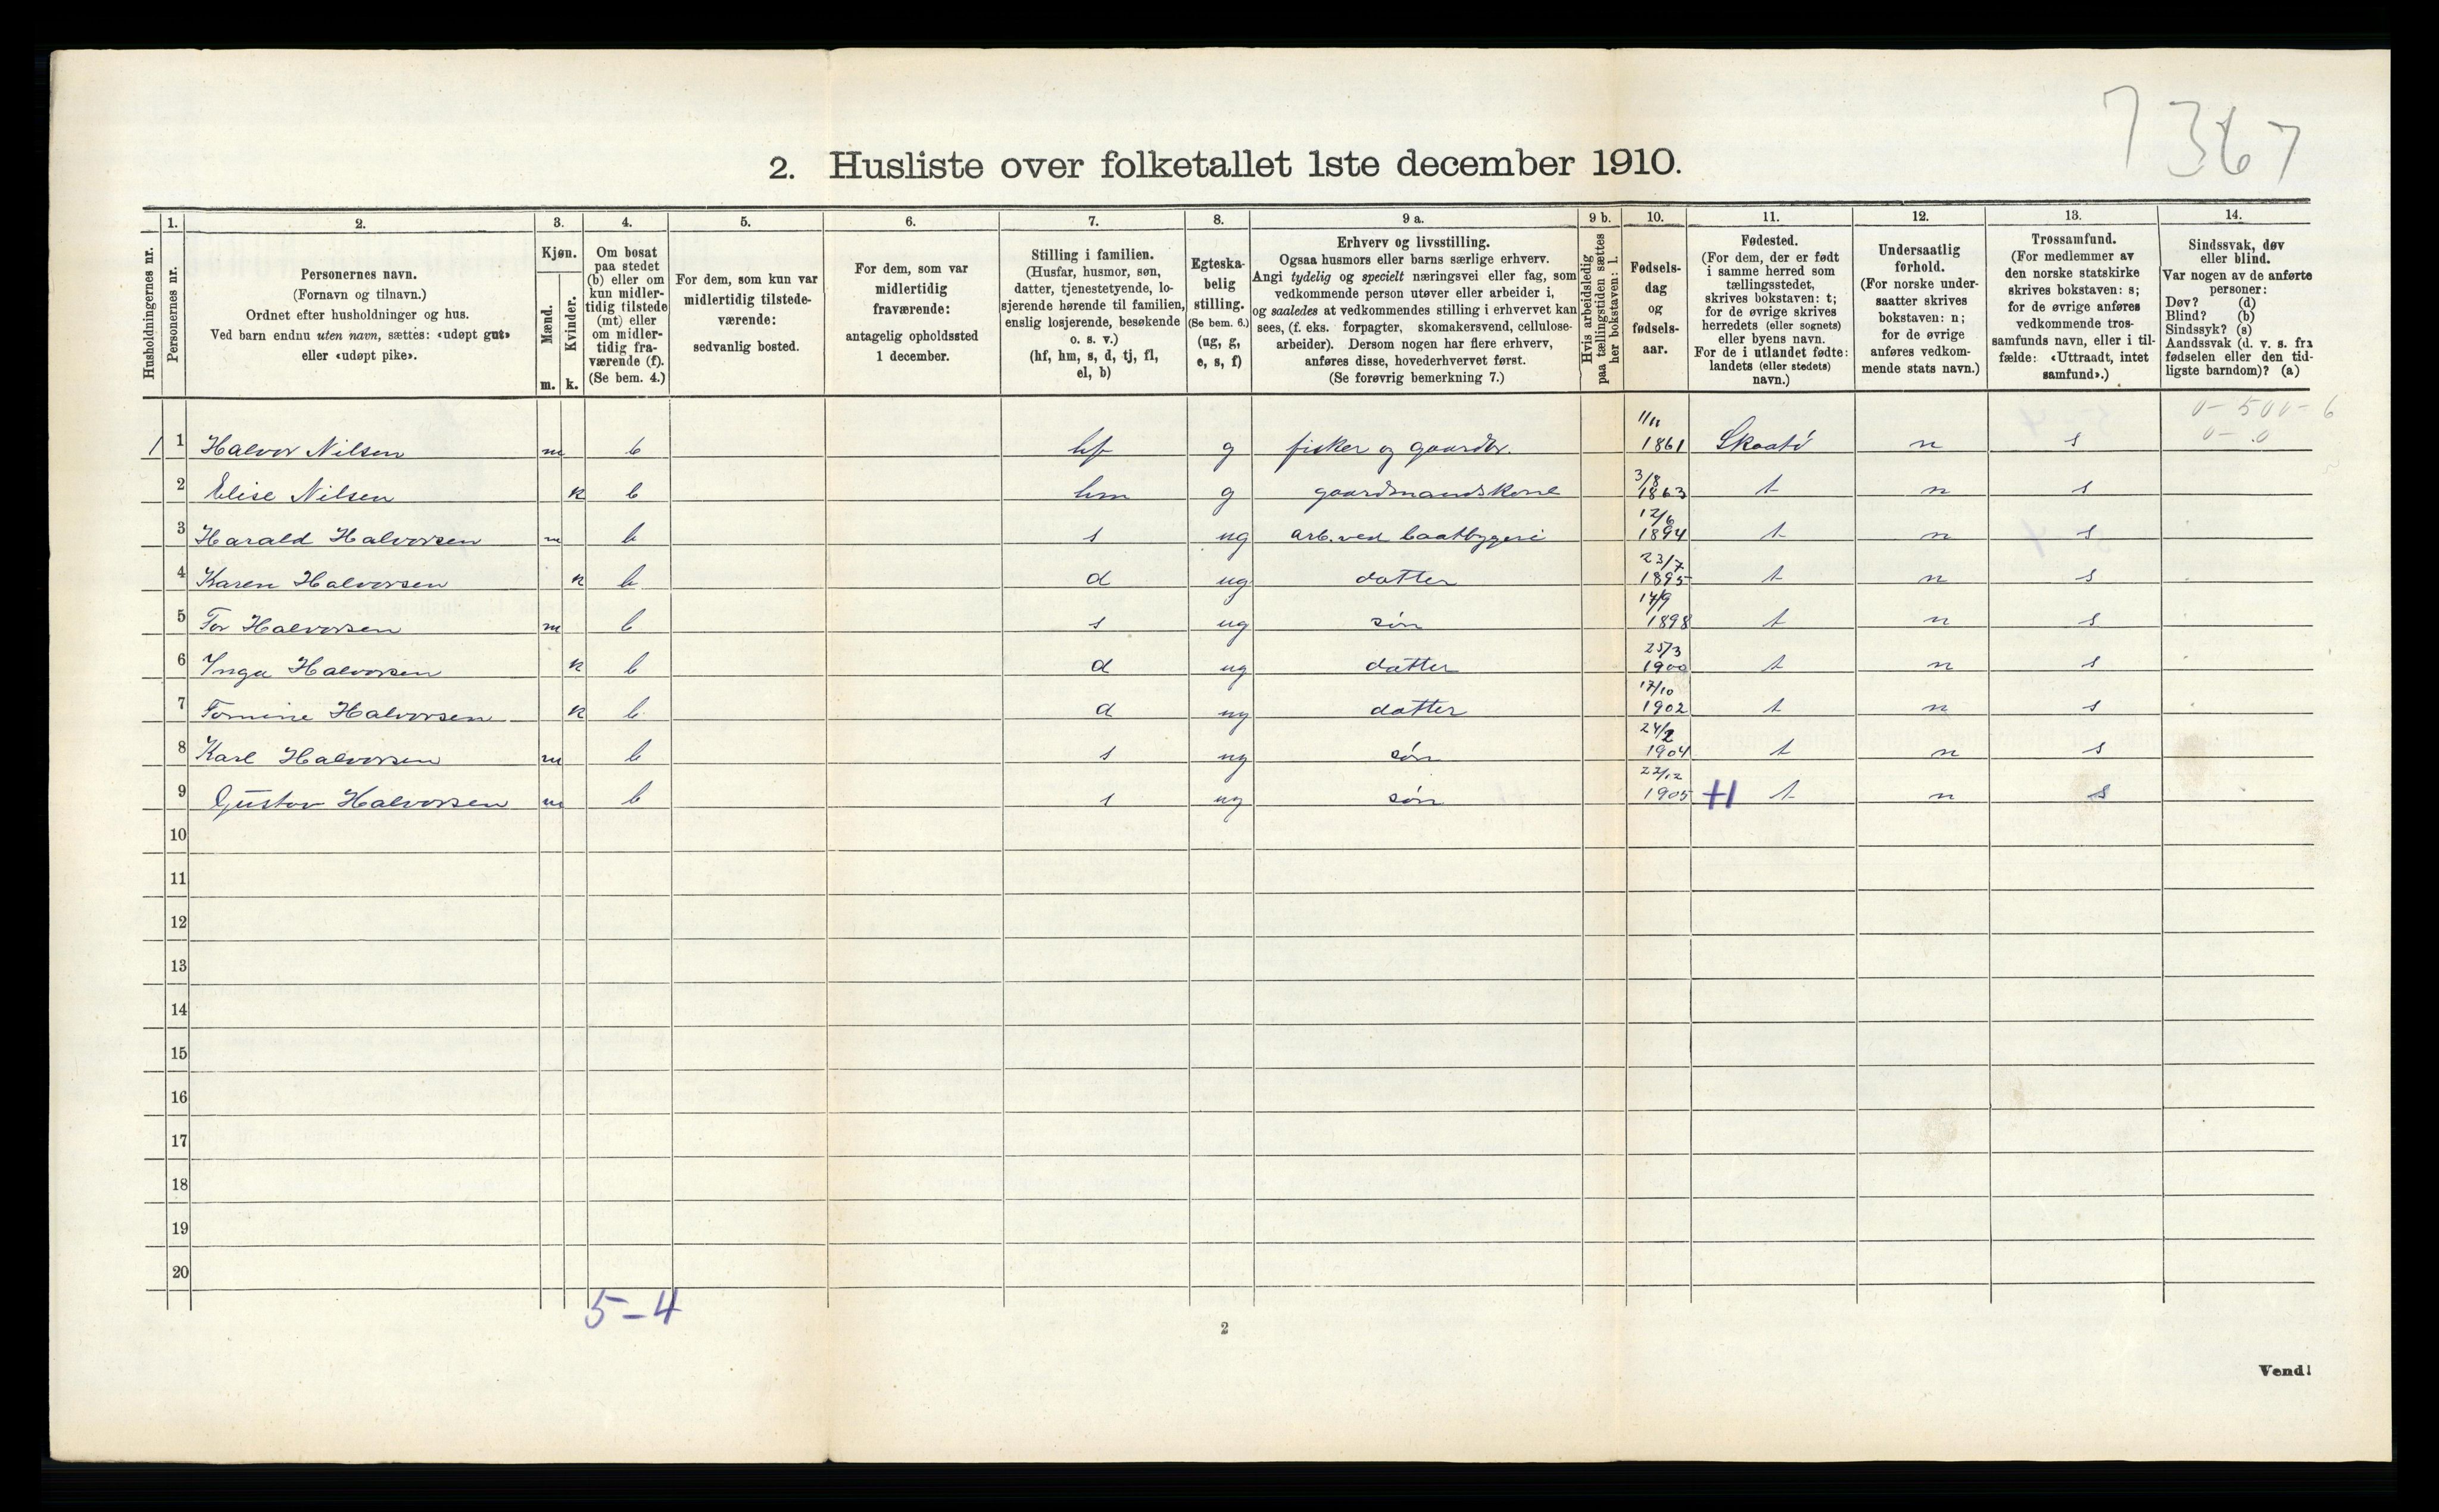 7367
2. Husliste over folketallet 1ste december 1910.
Husholdningernes nr.
1.
Personernes nr.
2.
Personernes navn.
(Fornavn og tilnavn.)
Ordnet efter husholdninger og hus.
Ved barn endnu uten navn, sættes: «udøpt gut»
eller «udøpt pike».
3.
Kjøn.
Mænd.
Kvinder.
m. k.
4.
Om bosat
paa stedet
(b) eller om
kun midler-
tidig tilstede
(mt) eller
om midler-
tidig fra-
værende (f).
(Se bem. 4.)
5.
For dem, som kun var
midlertidig tilstede-
værende:
sedvanlig bosted.
6.
For dem, som var
midlertidig
fraværende:
antagelig opholdssted
1 december.
7.
Stilling i familien.
(Husfar, husmor, søn,
datter, tjenestetyende, lo-
sjerende hørende til familien,
enslig losjerende, besøkende
o. s. v.)
(hf, hm, s, d, tj, fl,
el, b)
8.
Egteska-
belig
stilling.
(Se bem. 6.)
(ug, g,
e, s, f)
9 a.
Erhverv og livsstilling.
Ogsaa husmors eller barns særlige erhverv.
Angi tydelig og specielt næringsvei eller fag, som
vedkommende person utøver eller arbeider i,
og saaledes at vedkommendes stilling i erhvervet kan
sees, (f. eks. forpagter, skomakersvend, cellulose-
arbeider). Dersom nogen har flere erhverv,
anføres disse, hovederhvervet først.
(Se forøvrig bemerkning 7.)
9 b.
Hvis arbeidsledig
paa tællingstiden sættes
her bokstaven: l.
10.
Fødsels-
dag
og
fødsels-
aar.
11.
Fødested.
(For dem, der er født
i samme herred som
tællingsstedet,
skrives bokstaven: t;
for de øvrige skrives
herredets (eller sognets)
eller byens navn.
For de i utlandet fødte:
landets (eller stedets)
navn.)
12.
Undersaatlig
forhold.
(For norske under-
saatter skrives
bokstaven: n;
for de øvrige
anføres vedkom-
mende stats navn.)
13.
Trossamfund.
(For medlemmer av
den norske statskirke
skrives bokstaven: s;
for de øvrige anføres
vedkommende tros-
samfunds navn, eller i til-
fælde: «Uttraadt, intet
samfund».)
14.
Sindssvak, døv
eller blind.
Var nogen av de anførte
personer:
Døv? (d)
Blind? (b)
Sindssyk? (s)
Aandssvak (d. v. s. fra
fødselen eller den tid-
ligste barndom)? (a)
1 1 Halvor Nilsen m b hf g fisker og gaardbr. 11/11 1861 Skaatö n s
2 Elise Nilsen k b hm g gaardmandskone 3/8 1863 t n s
3 Harald Halvorsen m b s ug arb. ved baatbyggeri 12/6 1894 t n s
4 Karen Halvorsen k b d ug datter 23/7 1895 t n s
5 Tor Halvorsen m b s ug søn 17/9 1898 t n s
6 Inga Halvorsen k b d ug datter 25/3 1900 t n s
7 Tomine Halvorsen k b d ug datter 17/10 1902 t n s
8 Karl Halvorsen m b s ug søn 24/2 1904 t n s
9 Gustav Halvorsen m b s ug søn 22/12 1905 t n s
10
11
12
13
14
15
16
17
18
19
20
5-4
2
Vend!